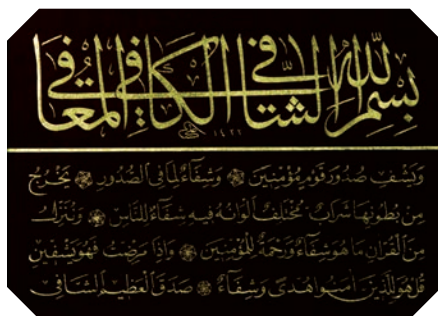 بِسْمِ اللّٰهِ الشَّافِي الْكَافِي الْمُعَافِي
١٤٢١
وَيَشْفِ صُدُورَ قَوْمٍ مُؤْمِنِينَ ۞ وَشِفَآءٌ لِمَا فِي الصُّدُورِ ۞ يَخْرُجُ
مِنْ بُطُونِهَا شَرَابٌ مُخْتَلِفٌ اَلْوَانُهُ فِيهِ شِفَآءٌ لِلنَّاسِ ۞ وَنُنَزِّلُ
مِنَ الْقُرْاٰنِ مَا هُوَ شِفَآءٌ وَرَحْمَةٌ لِلْمُؤْمِنِينَ ۞ وَاِذَا مَرِضْتُ فَهُوَ يَشْفِينِ
قُلْ هُوَ لِلَّذِينَ اٰمَنُوا هُدًى وَشِفَآءٌ ۞ صَدَقَ الْعَظِيمُ الشَّافِي